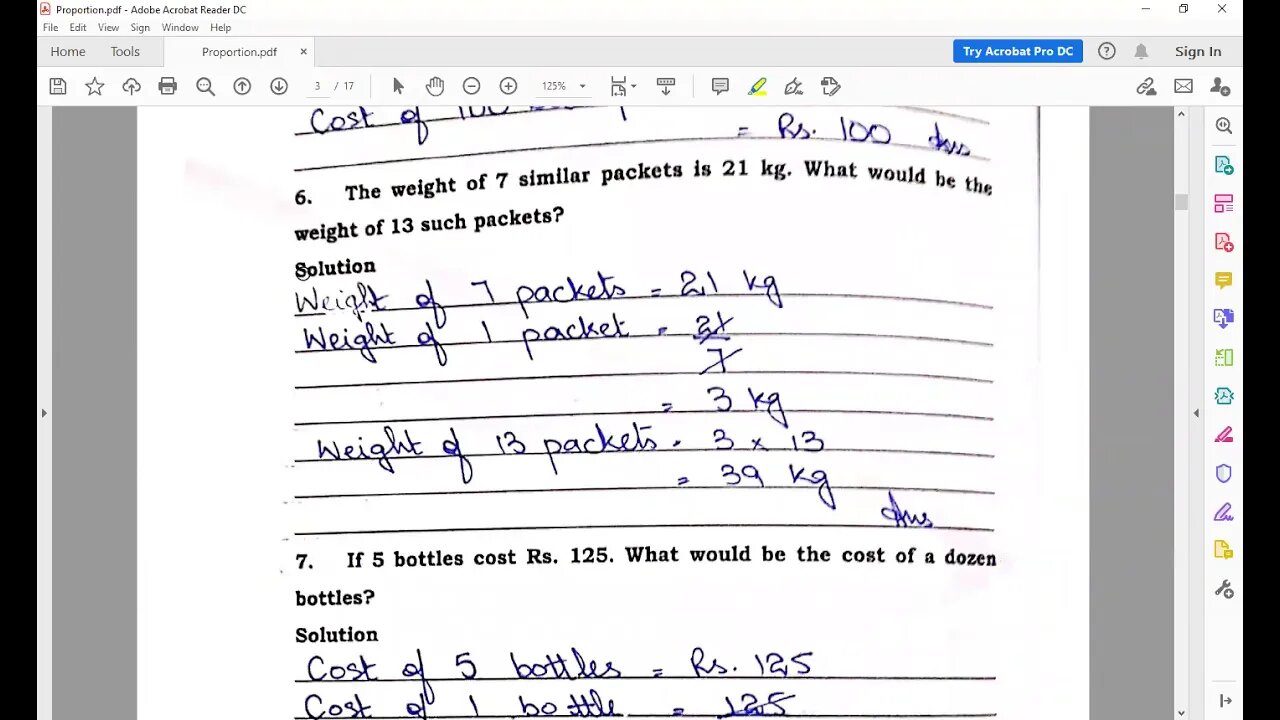 Proportion.pdf - Adobe Acrobat Reader DC
File Edit View Sign Window Help
Home Tools Proportion.pdf × Try Acrobat Pro DC Sign In
3 / 17 125%
Cost of 100
= Rs. 100 Ans
6. The weight of 7 similar packets is 21 kg. What would be the
weight of 13 such packets?
Solution
Weight of 7 packets = 21 kg
Weight of 1 packet = 21
7
= 3 kg
Weight of 13 packets = 3 × 13
= 39 kg
Ans
7. If 5 bottles cost Rs. 125. What would be the cost of a dozen
bottles?
Solution
Cost of 5 bottles = Rs. 125
Cost of 1 bottle = 125